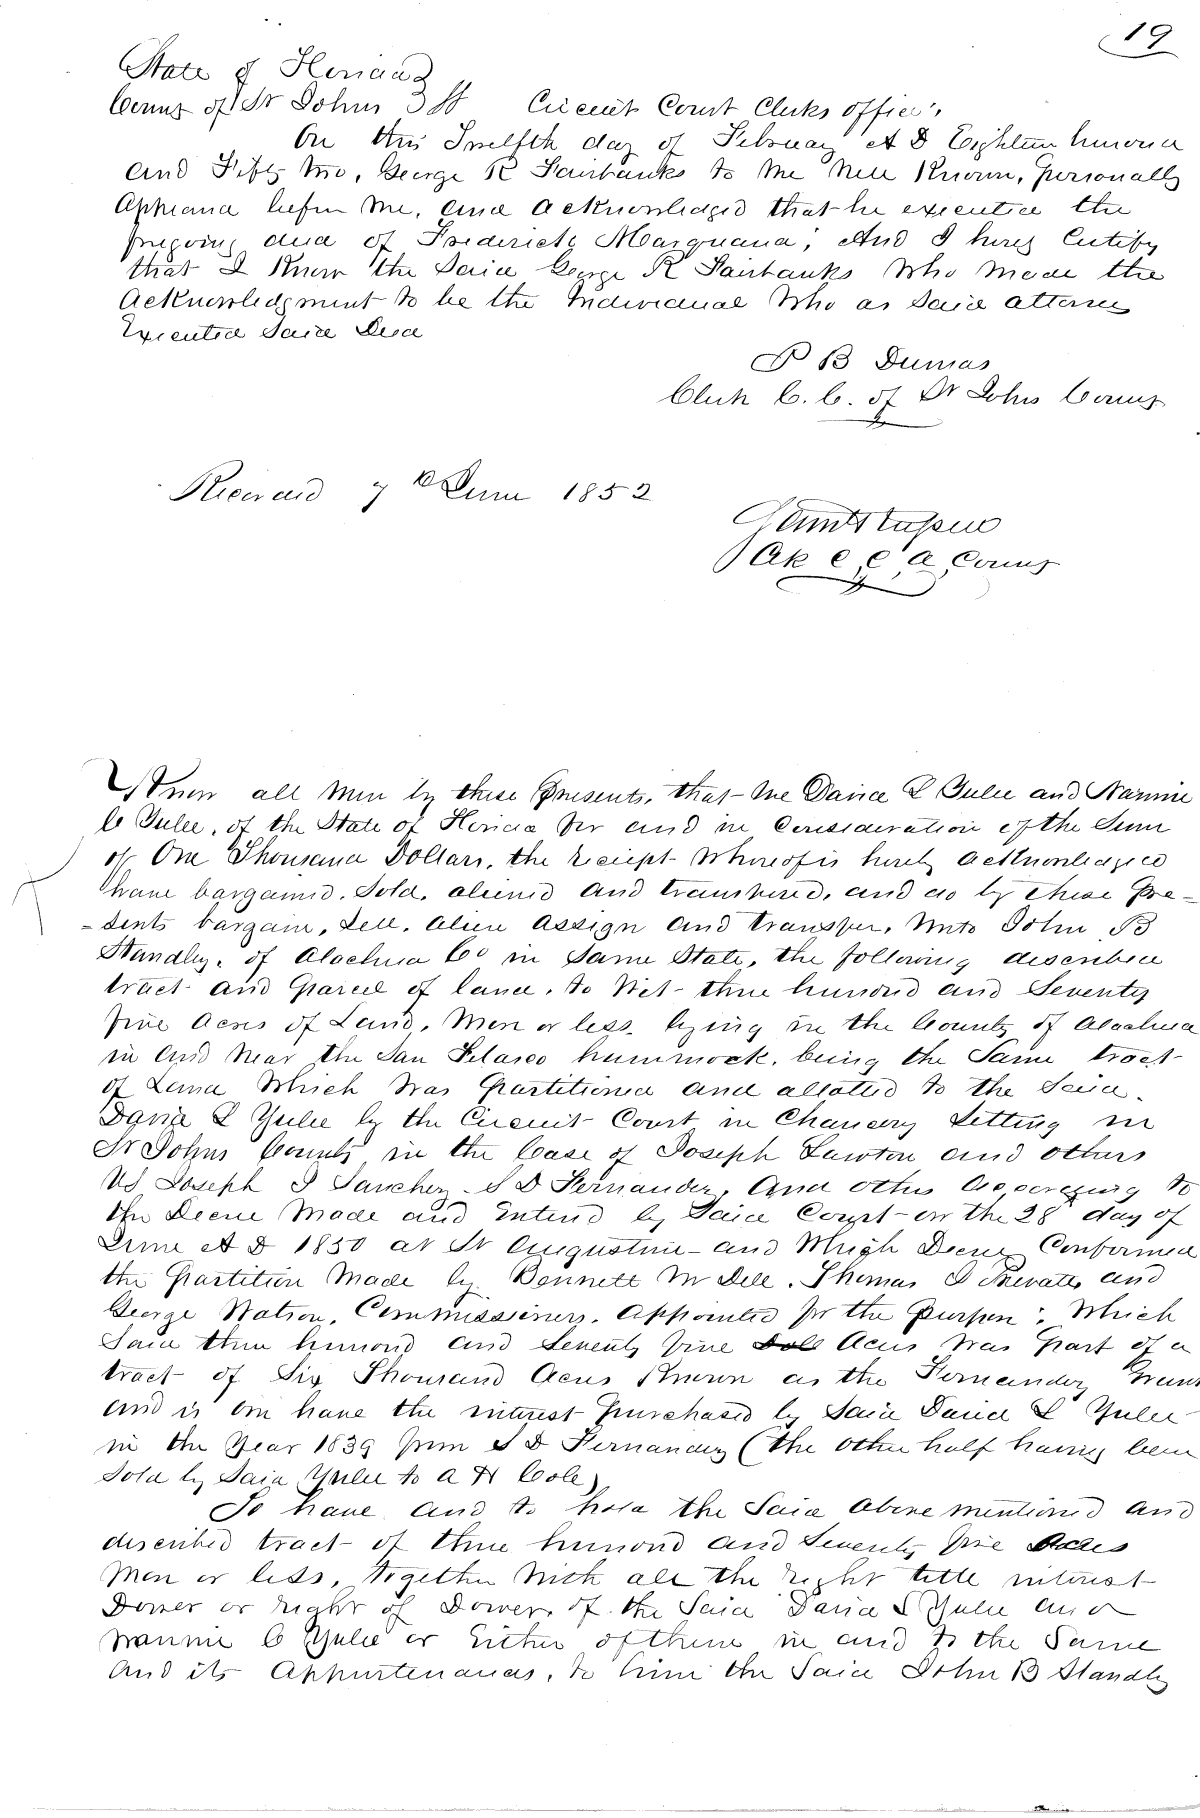 19
State of Florida
County of St Johns } SS Circuit Court Clerks office,
On this Twelfth day of February A D Eighteen hundred
and Fifty two, George R Fairbanks to me well Known, personally
appeared before me, and acknowledged that he executed the
foregoing deed of Frederick Marquand; And I hereby Certify
that I Know the Said George R Fairbanks who made the
acknowledgment to be the Individual who as Said attorney
Executed Said Deed
P B Dumas
Clerk C. C. of St Johns County
Record 7th June 1852
C C A County
Know all Men by these Presents, that We David L Yulee and Nannie
C Yulee, of the State of Florida for and in Consideration of the Sum
of One Thousand Dollars, the receipt whereof is hereby acknowledged
have bargained, Sold, aliened and transferred, and do by these Pre=
=sents bargain, Sell, alien assign and transfer, unto John B
Standly, of Alachua Co in Same State, the following described
tract and parcel of land, to Wit- three hundred and Seventy
five Acres of Land, More or less, lying in the County of Alachua
in and near the San Felasco hummock, being the Same tract
of Land which was partitioned and allotted to the Said
David L Yulee by the Circuit Court in Chancery Sitting in
St Johns County in the Case of Joseph Lawton and others
Vs Joseph S Sanchez S D Fernandez, and others According to
the Decree Made and Entered by Said Court on the 28th day of
June A D 1850 at St Augustine- and Which Decree Confirmed
the partition Made by Bennett M Dell, Thomas J Prevatt, and
George Watson, Commissioners, appointed for the purpose; Which
Said three hundred and Seventy five Acres was part of a
tract of Six Thousand Acres Known as the Fernandez Grant
and is one half the interest purchased by Said David L Yulee
in the Year 1839 from S D Fernandez (the other half having been
Sold by Said Yulee to A H Cole)
To have and to hold the Said above mentioned and
described tract of three hundred and Seventy five Acres
More or less, together With all the right title interest
Dower or right of Dower, of the Said David L Yulee and
Nannie C Yulee or Either of them in and to the Same
and its Appurtenances, to him the Said John B Standly